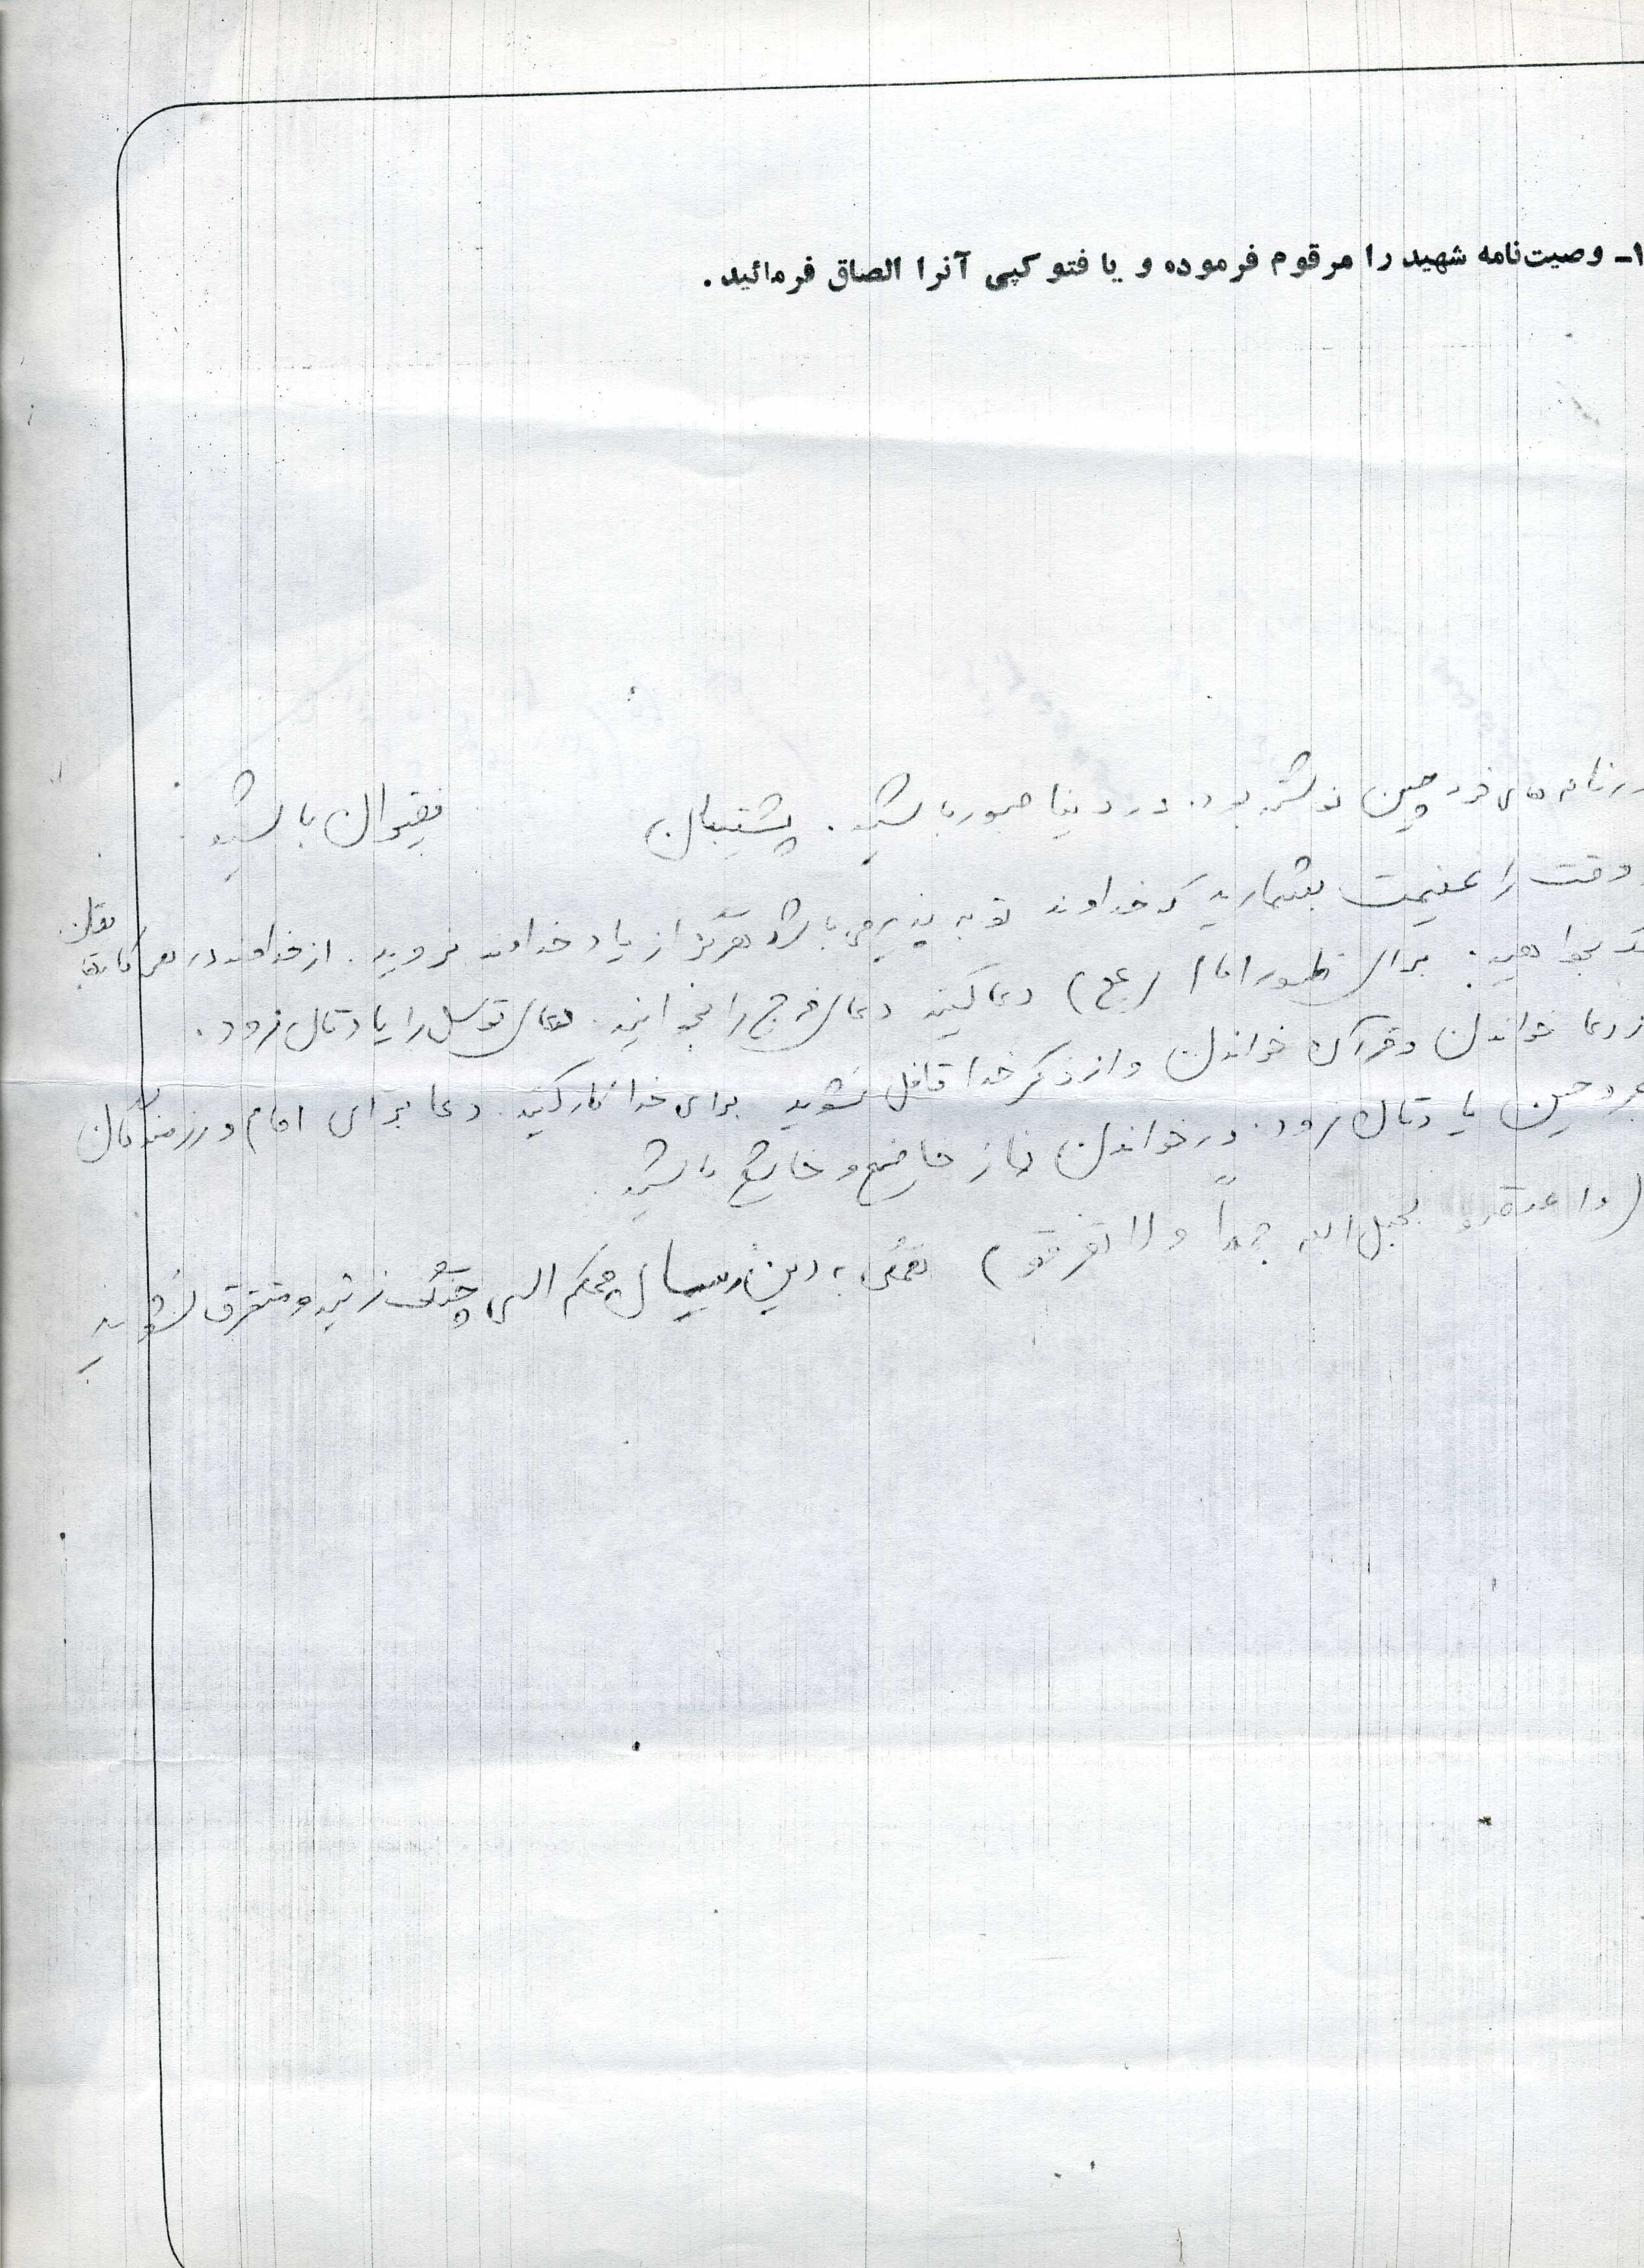 ۱- وصیت‌نامه شهید را مرقوم فرموده و یا فتو کپی آنرا الصاق فرمائید.
در نامه های خود چنین نوشته بود. در دنیا صبور باشید. پشتیبان فقیران باشید
وقت را غنیمت بشمارید که خداوند توبه پذیر می باشد هرگز از یاد خداوند نروید. از خداوند در هر کارتان
بخواهید. برای ظهور امام (عج) دعا کنید دعای فرج را بخوانید. دعای توسل را یادتان نرود.
از دعا خواندن و قرآن خواندن و از ذکر خدا قافل نشوید برای خدا کار کنید. دعا برای امام و رزمندگان
مجروحین یادتان نرود. در خواندن نماز خاضع و خاشع باشید.
(وا بحبل الله جمیعاً ولا تفرقو) همگی به دین محکم الهی چنگ زنید و متفرق نشوید